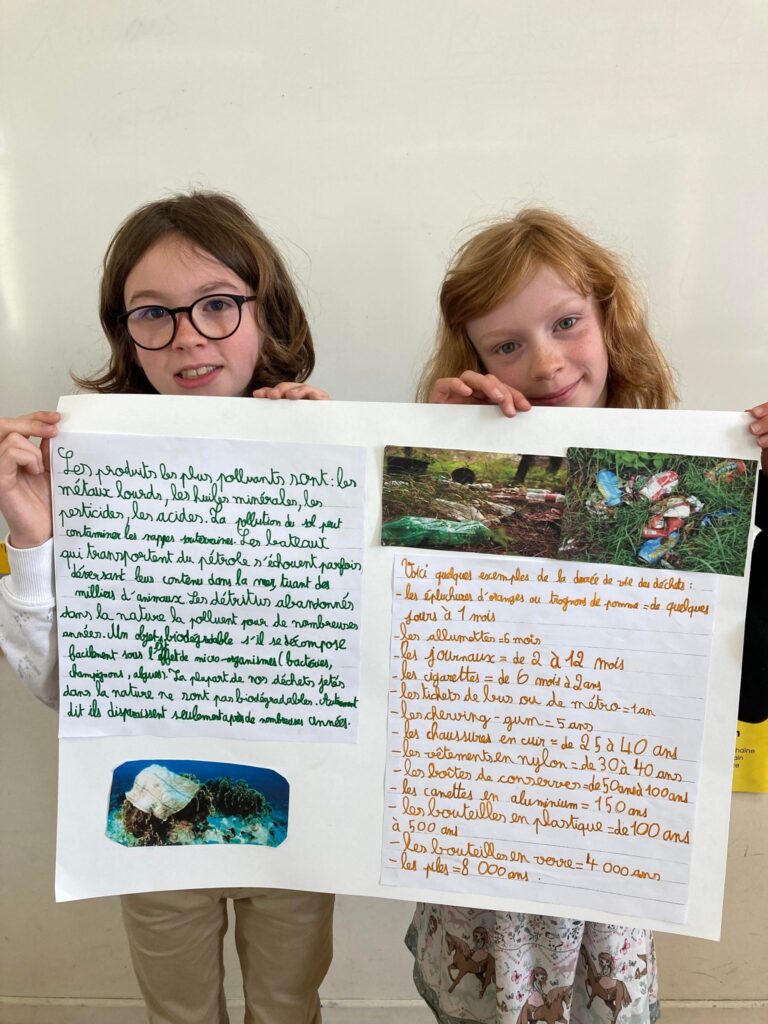 Les produits les plus polluants sont : les
métaux lourds, les huiles minérales, les
pesticides, les acides. La pollution du sol peut
contaminer les nappes souterraines. Les bateaux
qui transportent du pétrole s'échouent parfois
déversant leur contenu dans la mer, tuant des
milliers d'animaux. Les détritus abandonnés
dans la nature la polluent pour de nombreuses
années. Un objet biodégradable s'il se décompose
facilement sous l'effet de micro-organismes (bactéries,
champignons, algues). La plupart de nos déchets jetés
dans la nature ne sont pas biodégradables. Autrement
dit ils disparaissent seulement après de nombreuses années.
Voici quelques exemples de la durée de vie des déchets :
- les épluchures d'oranges ou trognons de pomme = de quelques
jours à 1 mois
- les allumettes = 6 mois
- les journaux = de 2 à 12 mois
- les cigarettes = de 6 mois à 2 ans
- les tickets de bus ou de métro = 1 an
- les chewing-gum = 5 ans
- les chaussures en cuir = de 25 à 40 ans
- les vêtements en nylon = de 30 à 40 ans
- les boîtes de conserves = de 50 ans à 100 ans
- les canettes en aluminium = 150 ans
- les bouteilles en plastique = de 100 ans
à 500 ans
- les bouteilles en verre = 4 000 ans
- les piles = 8 000 ans.